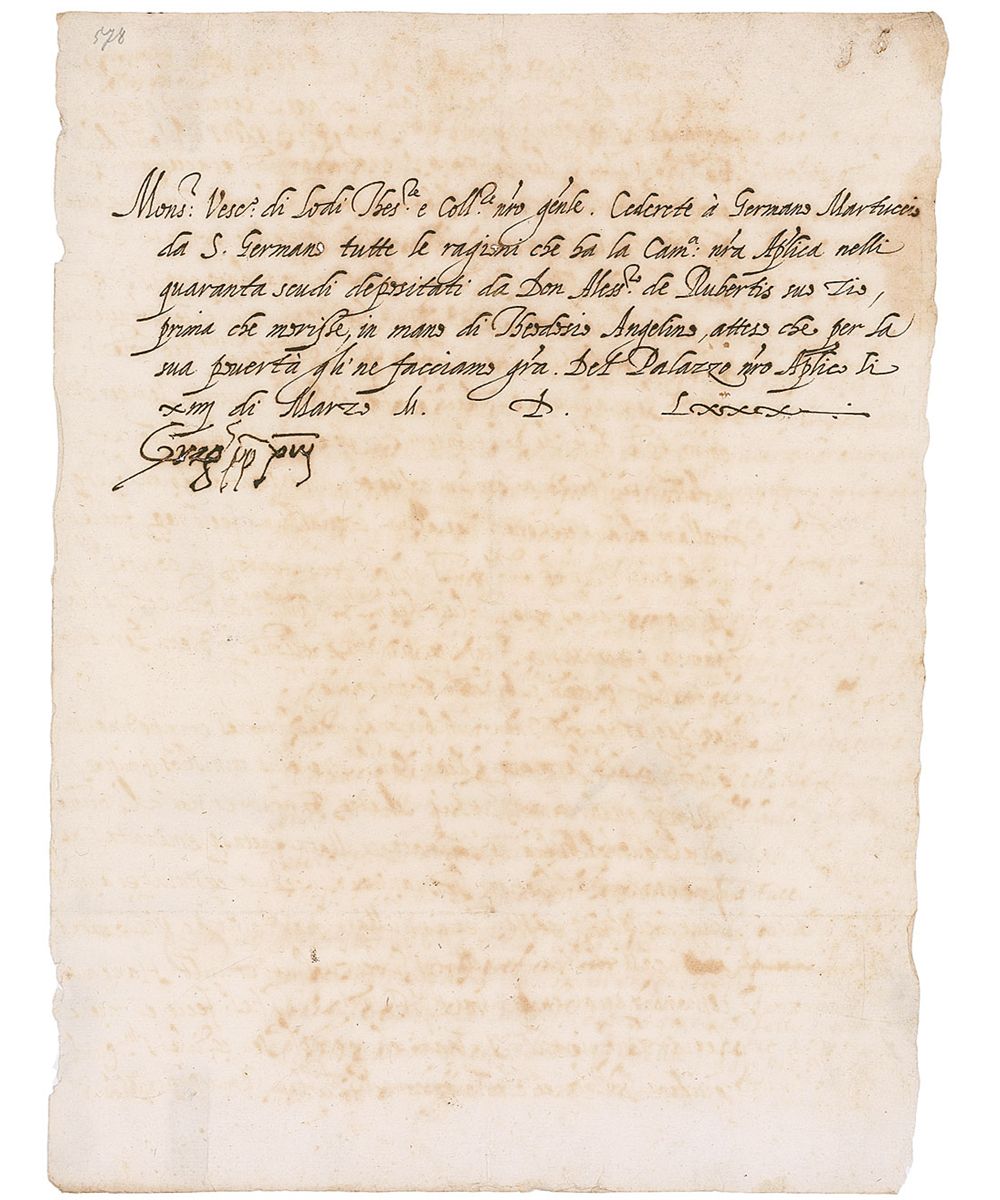 578
Mons.r Vesc.o di Lodi Thes.re e Coll.re nr̃o gẽnle. Cederete à Germano Martuccio
da S. Germano tutte le ragioni che ha la Cam.a nr̃a Ap̃lica nelli
quaranta scudi depositati da Don Aless.ro de Rubertis suo Zio,
prima che morisse, in mano di Theodosio Angelino, atteso che per la
sua povertà gli ne facciamo gr̃a. Del Palazzo nr̃o Ap̃lico li
xiiij di Marzo M. D. Lxxx
Greg pp xiij